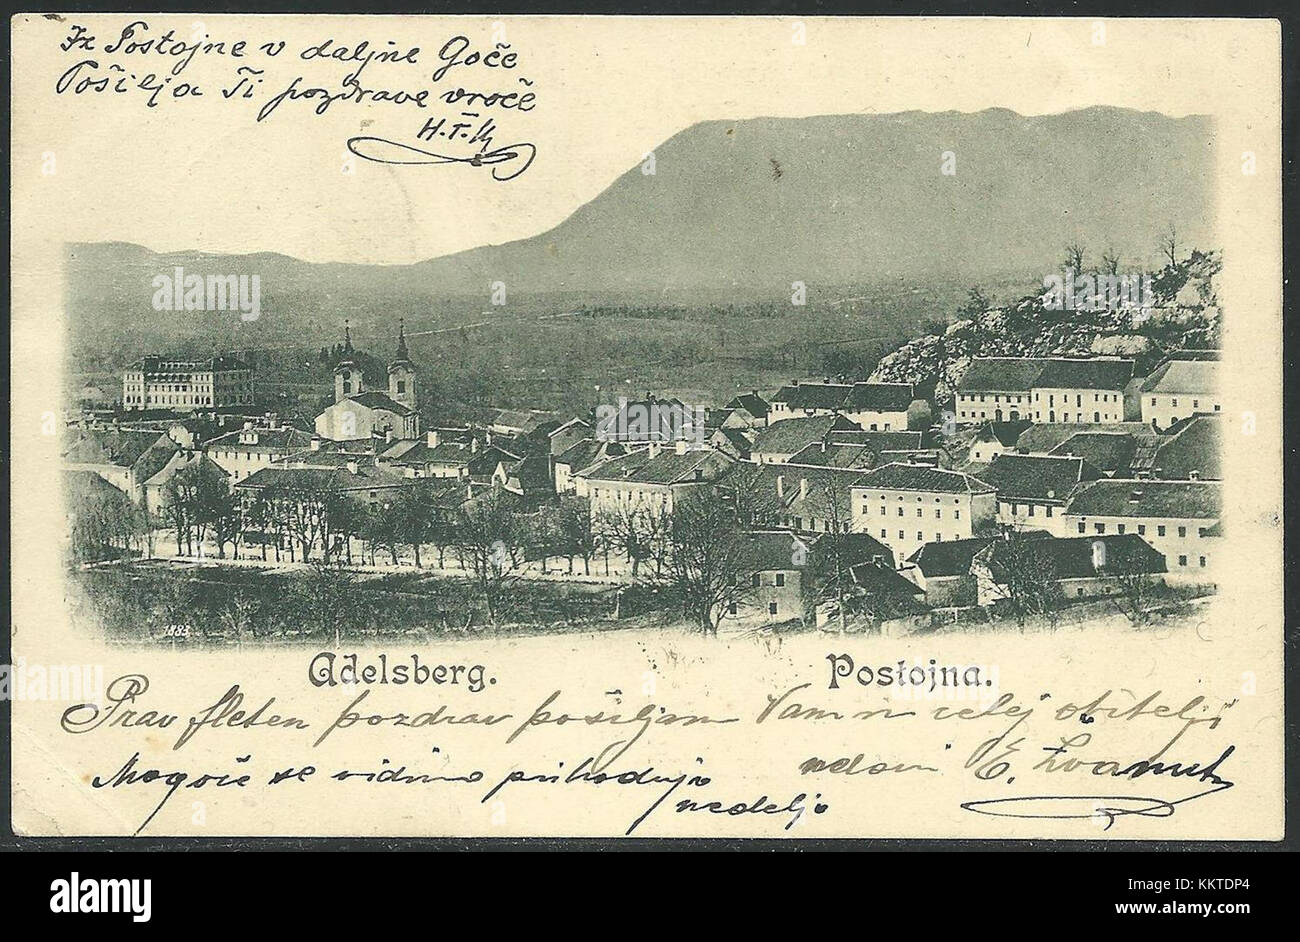 Iz Postojne v daljne Goče
Pošilja Ti pozdrave vroče
H.F.
1883
Adelsberg. Postojna.
Prav fleten pozdrav pošiljam Vam in celej obitelji
Mogoče se vidimo prihodnjo vdani E.
nedeljo
alamy
Image ID: KKTDP4
www.alamy.com